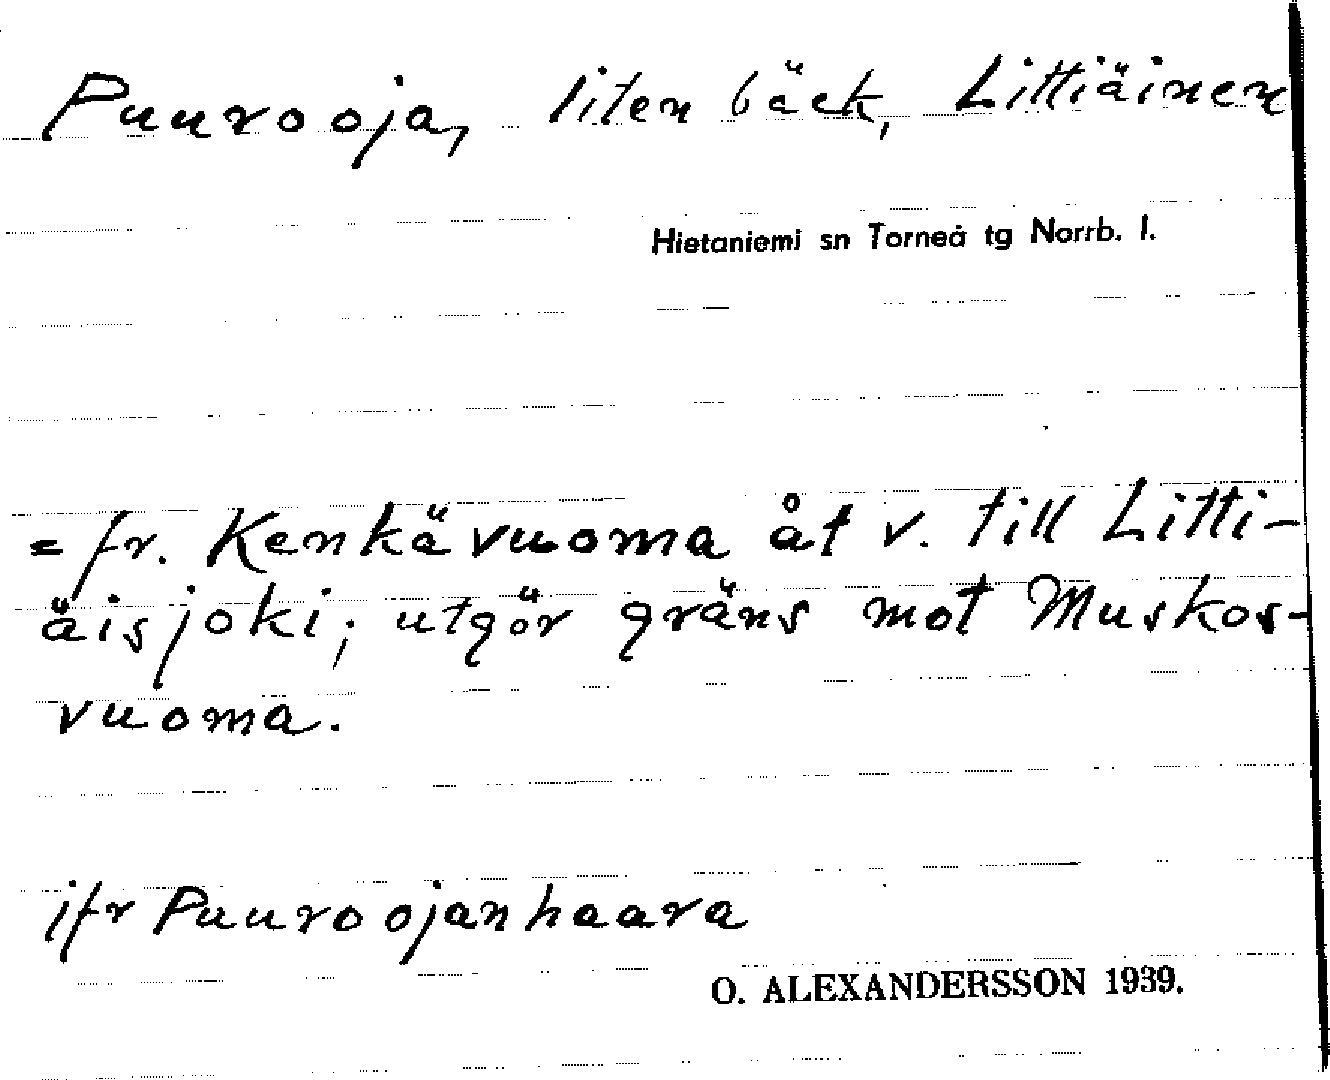 Puuro oja, liten bäck, Littiäinen
Hietaniemi sn Torneå tg Norrb. l.
= fr. Kenkävuoma åt v. till Litti-
äisjoki; utgör gräns mot Muskos-
vuoma.
jfr Puuro ojanhaara
O. ALEXANDERSSON 1939.